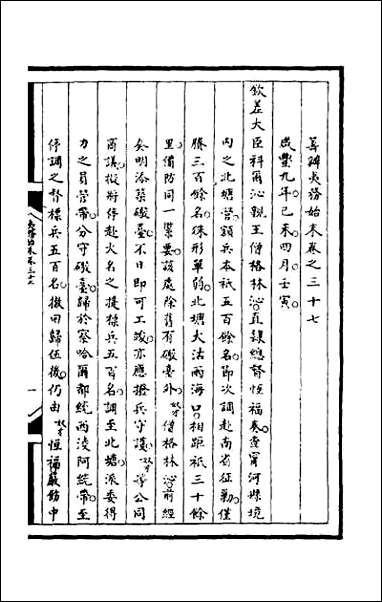 籌辦夷務始末卷之三十七
咸豐九年己未四月壬寅
欽差大臣科爾沁親王僧格林沁直隸總督恒福奏查甯河縣境
內之北塘營額兵本祇五百餘名節次調赴南省征勦僅
賸三百餘名殊形單弱北塘大沽兩海口相距祇三十餘
里備防同一緊要該處除舊有礮臺外奴才僧格林沁前經
奏明添築礮臺不日即可工竣亦應撥兵守護奴才等公同
商議擬將停赴火名之提標兵五百名調至北塘派委得
力之員管帶分守礮臺歸於察哈爾都統西淩阿統帶至
停調之督標兵五百名撤回歸伍後仍由奴才恒福嚴飭中
夷務始末卷三十七
一